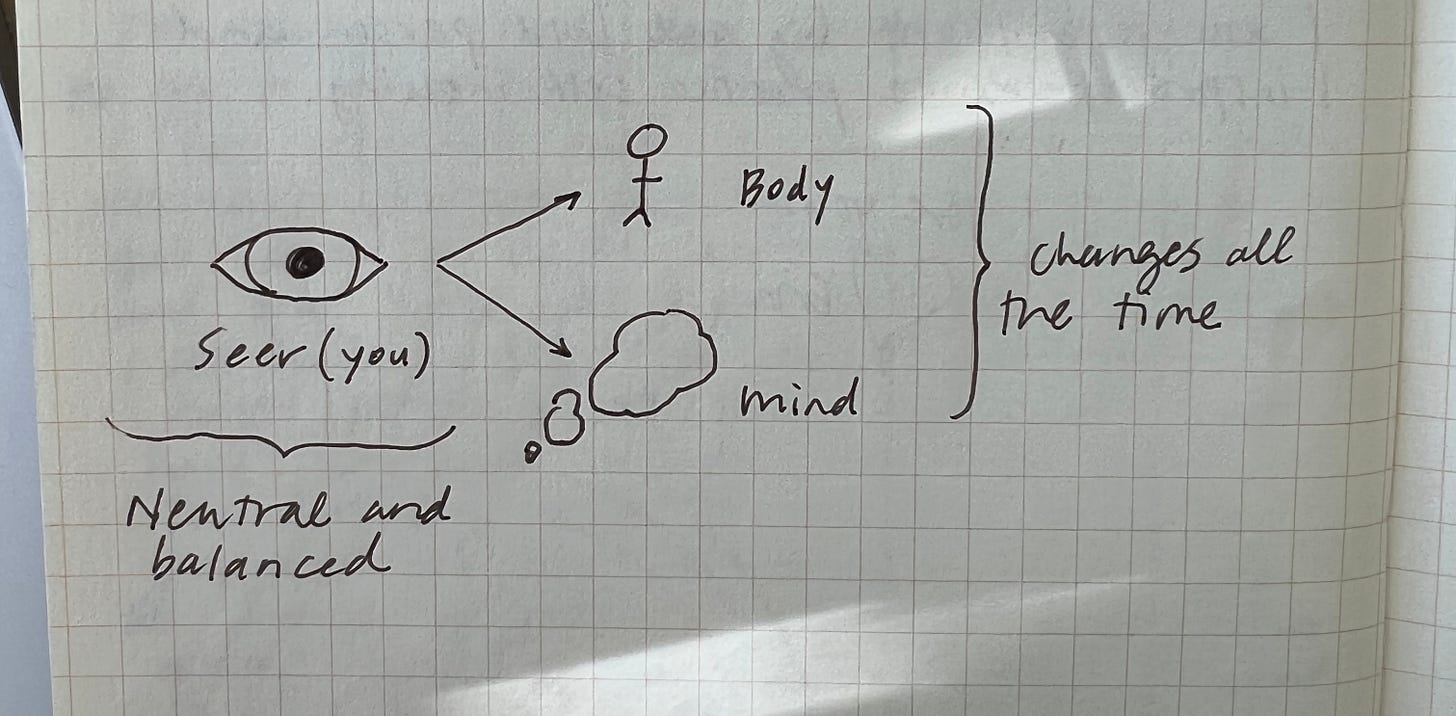 Body
Seer (you)
mind
changes all
the time
Neutral and
balanced